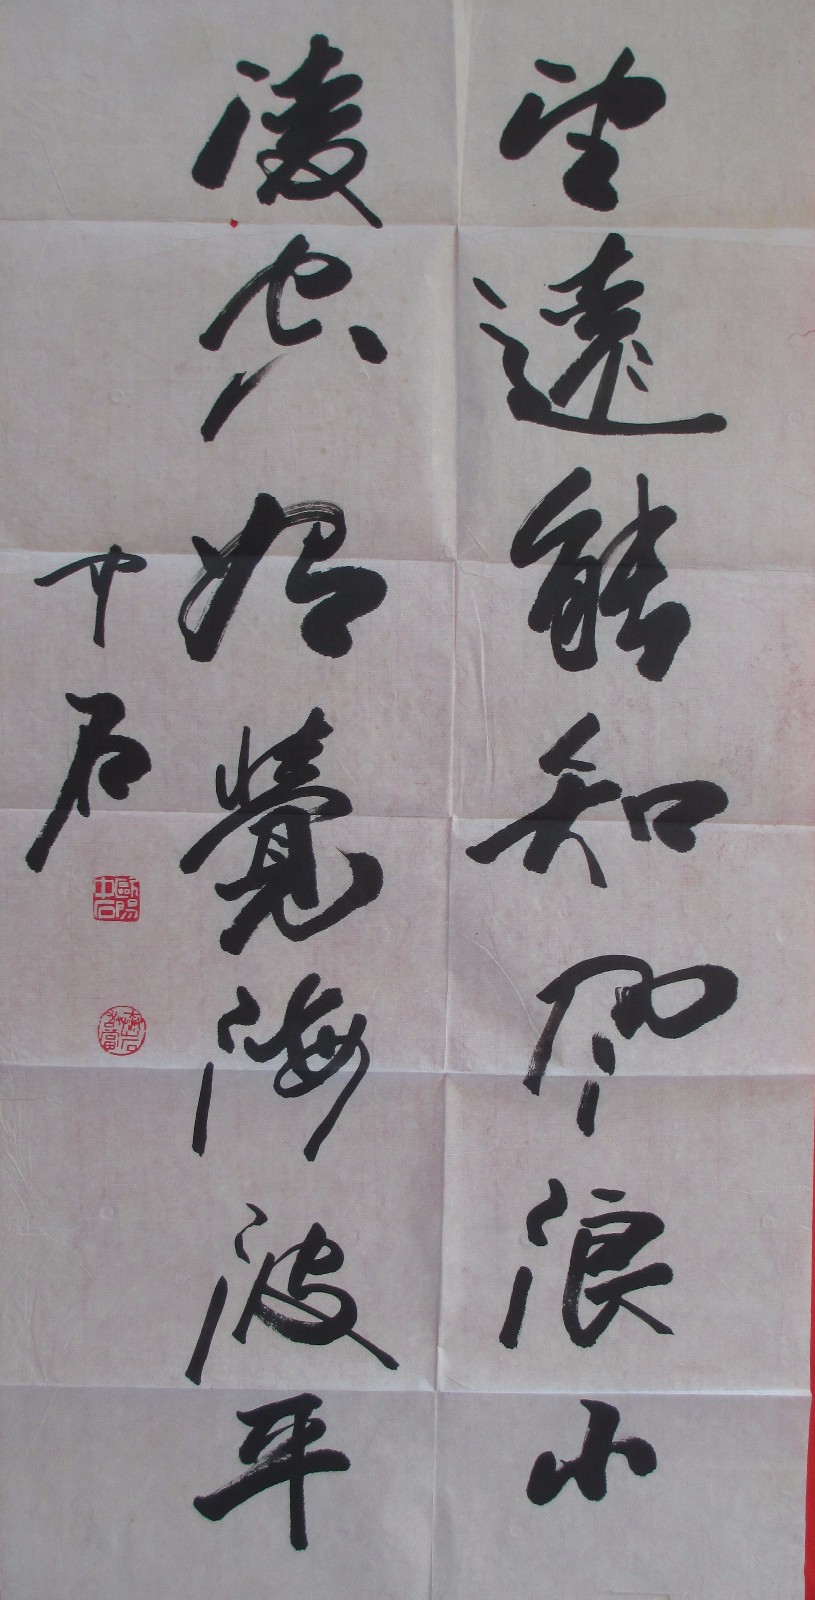 望遠能知風浪小
凌空始覺海波平
中石
歐陽中石